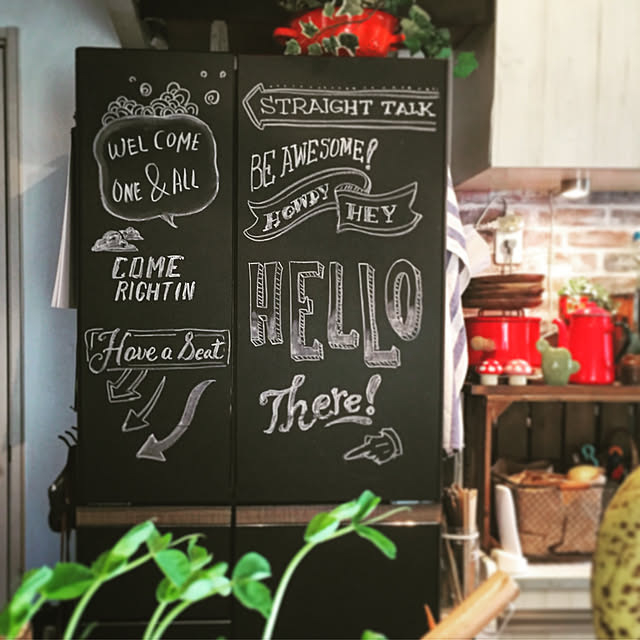 WELCOME
ONE & ALL
COME
RIGHT IN
Have a Seat
STRAIGHT TALK
BE AWESOME!
HOWDY
HEY
HELLO
There!